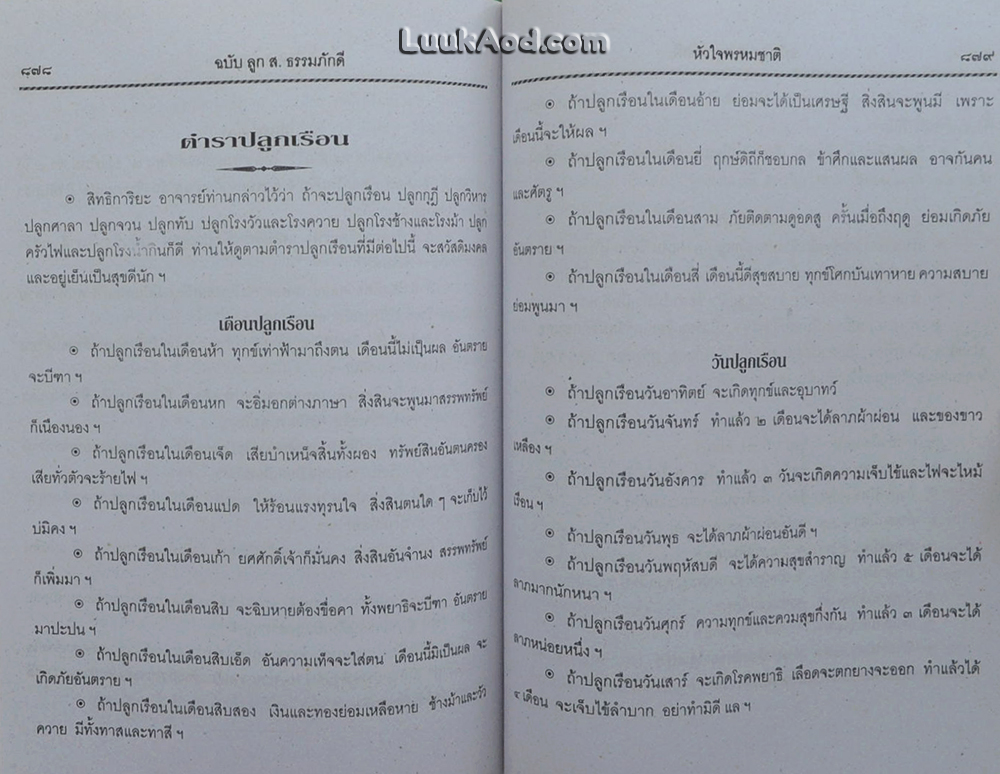 LuukAod.com
๘๗๘ ฉบับ ลูก ส. ธรรมภักดี
ตำราปลูกเรือน
๏ สิทธิการิยะ อาจารย์ท่านกล่าวไว้ว่า ถ้าจะปลูกเรือน ปลูกกุฏี ปลูกวิหาร
ปลูกศาลา ปลูกจวน ปลูกทับ ปลูกโรงวัวและโรงควาย ปลูกโรงช้างและโรงม้า ปลูก
ครัวไฟและปลูกโรงน้ำกินก็ดี ท่านให้ดูตามตำราปลูกเรือนที่มีต่อไปนี้ จะสวัสดิมงคล
และอยู่เย็นเป็นสุขดีนัก ฯ
เดือนปลูกเรือน
๏ ถ้าปลูกเรือนในเดือนห้า ทุกข์เท่าฟ้ามาถึงตน เดือนนี้ไม่เป็นผล อันตราย
จะบีฑา ฯ
๏ ถ้าปลูกเรือนในเดือนหก จะอิ่มอกต่างภาษา สิ่งสินจะพูนมาสรรพทรัพย์
ก็เนืองนอง ฯ
๏ ถ้าปลูกเรือนในเดือนเจ็ด เสียบำเหน็จสิ้นทั้งผอง ทรัพย์สินอันตนครอง
เสียทั่วตัวจะร้ายไฟ ฯ
๏ ถ้าปลูกเรือนในเดือนแปด ให้ร้อนแรงทุรนใจ สิ่งสินตนใด ๆ จะเก็บไว้
บ่มิคง ฯ
๏ ถ้าปลูกเรือนในเดือนเก้า ยศศักดิ์เจ้าก็มั่นคง สิ่งสินอันจำนง สรรพทรัพย์
ก็เพิ่มมา ฯ
๏ ถ้าปลูกเรือนในเดือนสิบ จะฉิบหายต้องขื่อคา ทั้งพยาธิจะบีฑา อันตราย
มาปะปน ฯ
๏ ถ้าปลูกเรือนในเดือนสิบเอ็ด อันความเท็จจะใส่ตน เดือนนี้มิเป็นผล จะ
เกิดภัยอันตราย ฯ
๏ ถ้าปลูกเรือนในเดือนสิบสอง เงินและทองย่อมเหลือหาย ช้างม้าและวัว
ควาย มีทั้งทาสและทาสี ฯ
หัวใจพรหมชาติ ๘๗๙
๏ ถ้าปลูกเรือนในเดือนอ้าย ย่อมจะได้เป็นเศรษฐี สิ่งสินจะพูนมี เพราะ
เดือนนี้จะให้ผล ฯ
๏ ถ้าปลูกเรือนในเดือนยี่ ฤกษ์ดิถีก็ชอบกล ข้าศึกและแสนผล อาจกันคน
และศัตรู ฯ
๏ ถ้าปลูกเรือนในเดือนสาม ภัยติดตามดูอดสู ครั้นเมื่อถึงฤดู ย่อมเกิดภัย
อันตราย ฯ
๏ ถ้าปลูกเรือนในเดือนสี่ เดือนนี้ดีสุขสบาย ทุกข์โศกบันเทาหาย ความสบาย
ย่อมพูนมา ฯ
วันปลูกเรือน
๏ ถ้าปลูกเรือนวันอาทิตย์ จะเกิดทุกข์และอุบาทว์
๏ ถ้าปลูกเรือนวันจันทร์ ทำแล้ว ๒ เดือนจะได้ลาภผ้าผ่อน และของขาว
เหลือง ฯ
๏ ถ้าปลูกเรือนวันอังคาร ทำแล้ว ๓ วันจะเกิดความเจ็บไข้และไฟจะไหม้
เรือน ฯ
๏ ถ้าปลูกเรือนวันพุธ จะได้ลาภผ้าผ่อนอันดี ฯ
๏ ถ้าปลูกเรือนวันพฤหัสบดี จะได้ความสุขสำราญ ทำแล้ว ๕ เดือนจะได้
ลาภมากนักหนา ฯ
๏ ถ้าปลูกเรือนวันศุกร์ ความทุกข์และควมสุขกึ่งกัน ทำแล้ว ๓ เดือนจะได้
ลาภหน่อยหนึ่ง ฯ
๏ ถ้าปลูกเรือนวันเสาร์ จะเกิดโรคพยาธิ เลือดจะตกยางจะออก ทำแล้วได้
๔ เดือน จะเจ็บไข้ลำบาก อย่าทำมิดี แล ฯ